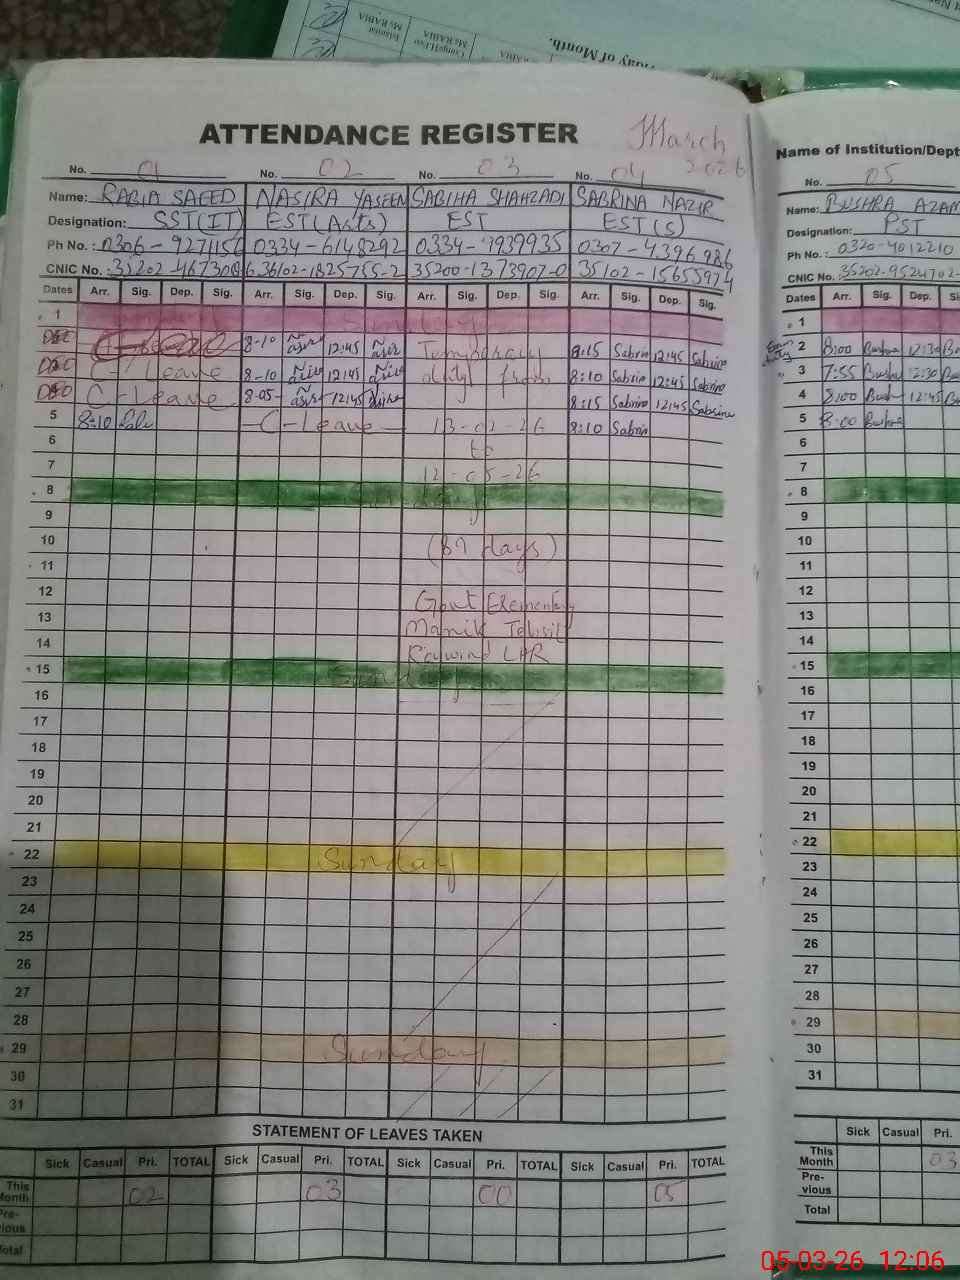 Islamiat
Ms RABIA
Comp/H.Eco
Ms RABIA
day of Month.
ATTENDANCE REGISTER
March
2026
No. 01 No. 02 No. 03 No. 04
Name: RABIA SAEED NASIRA YASEEN SABIHA SHAHZADI SABRINA NAZIR
Designation: SST(IT) EST(Arts) EST EST(S)
Ph No.: 0306-9271156 0334-6148292 0334-9939935 0307-4396986
CNIC No.: 35202-4673006 36102-1825755-2 35200-1373907-0 35102-1565597
Dates Arr. Sig. Dep. Sig. Arr. Sig. Dep. Sig. Arr. Sig. Dep. Sig. Arr. Sig. Dep. Sig.
1 Sunday
8-10 Nasir 12:45 Nasir Temporary 8:15 Sabrin 12:45 Sabrina
C-Leave 8-10 Nasira 12:45 Nasira duty from 8:10 Sabrin 12:45 Sabrina
C-Leave 8-05 Nasira 12:45 Nasira 8:15 Sabrin 12:45 Sabrina
5 8:10 C-Leave 13-02-26 8:10 Sabrin
6 to
7 12-05-26
8 Sunday
9
10 (89 days)
11
12 Govt Elementary
13 Manik Tehsil
14 Raiwind LHR
15 Sunday
16
17
18
19
20
21
22 Sunday
23
24
25
26
27
28
29 Sunday
30
31
STATEMENT OF LEAVES TAKEN
Sick Casual Pri. TOTAL Sick Casual Pri. TOTAL Sick Casual Pri. TOTAL Sick Casual Pri. TOTAL
This Month 02 03 00 05
Pre-vious
Total
Name of Institution/Dept
No. 05
Name: BUSHRA AZAM
Designation: PST
Ph No.: 0320-4012210
CNIC No.: 35202-9524702-
Dates Arr. Sig. Dep.
1
2 8:00 Bushra 12:30
3 7:55 Bushra 12:30
4 8:00 Bush 12:45
5 8:00 Bushra
6
7
8
9
10
11
12
13
14
15
16
17
18
19
20
21
22
23
24
25
26
27
28
29
30
31
Sick Casual Pri.
This Month 03
Pre-vious
Total
05-03-26 12:06